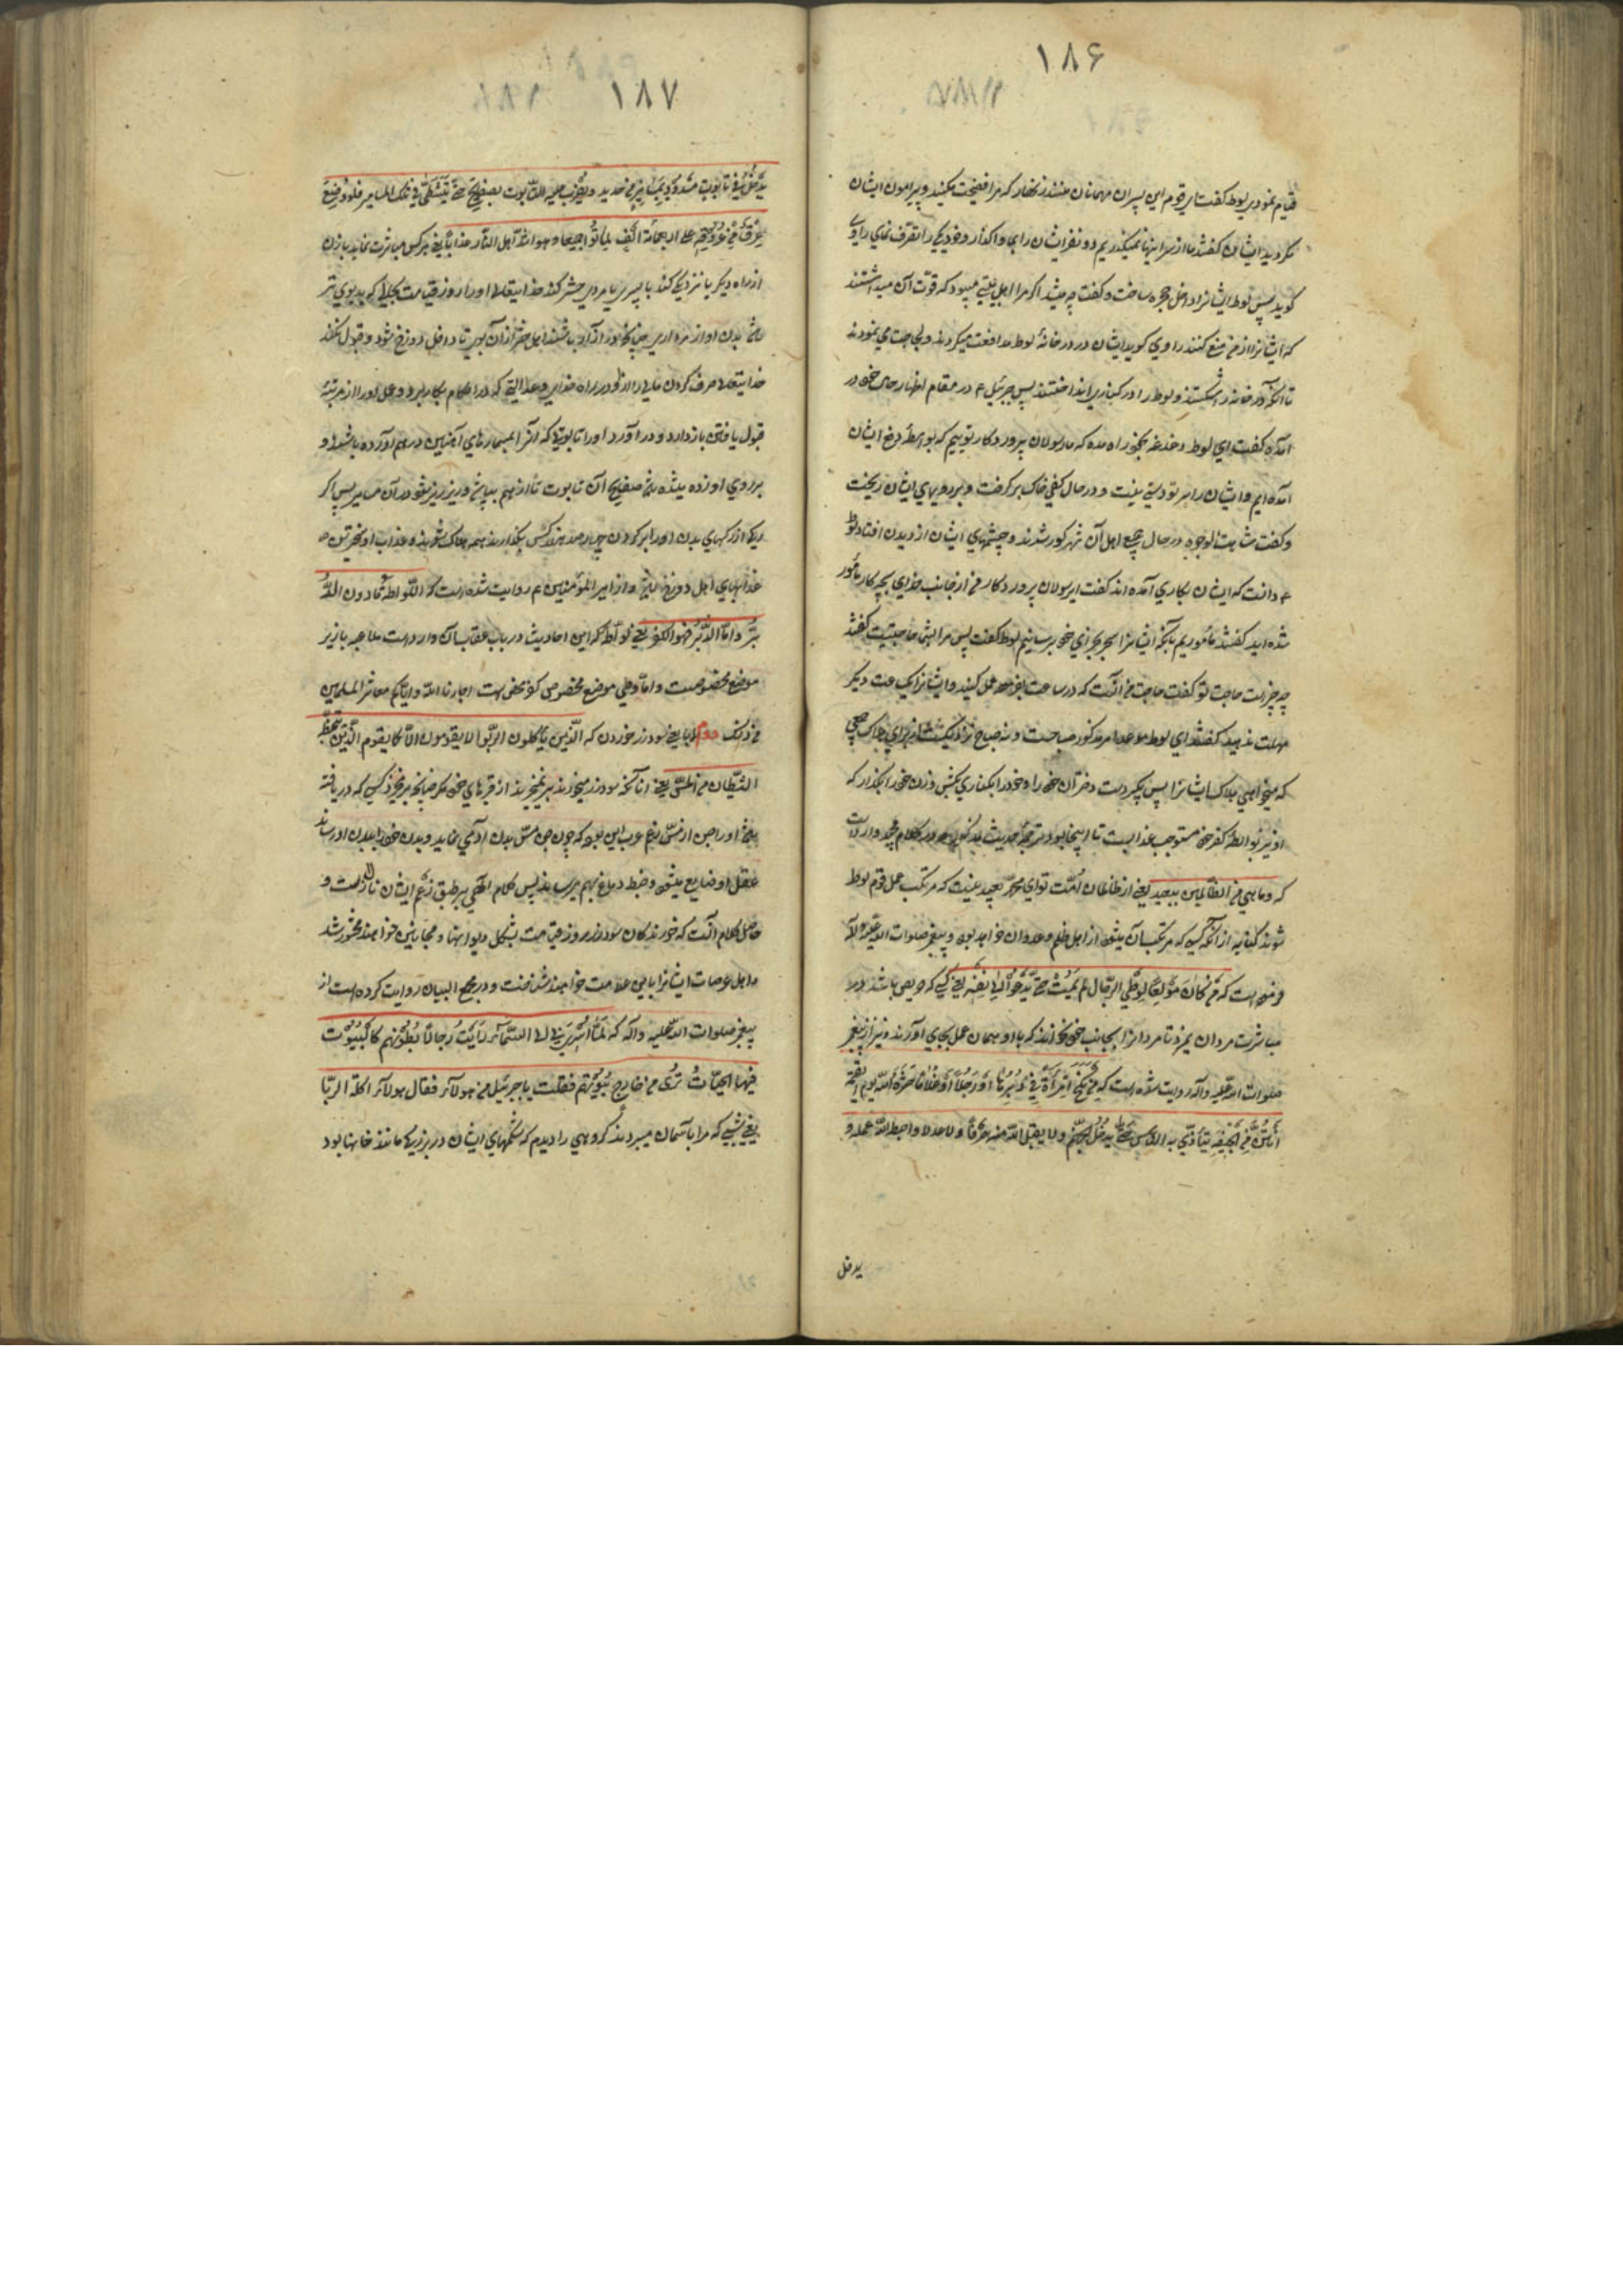 ۱۸۶
قیام نمودی لوط گفت ای قوم این پسران مهمانان منند زنهار که مرا فضیحت مکنید و پیرامون ایشان
مگردید ایشان گفتند ما از سر اینها نمیگذریم دو نفر ایشان را بما واگذار و خود یکی را تصرف نمای راوی
گوید پس لوط ایشانرا داخل حجره ساخت و گفت چه میشد اگر مرا اهل بیتی میبود که قوت آن میداشتند
که ایشانرا از من منع کنند راوی گوید ایشان در در خانهٔ لوط مدافعت میکردند و لجاجت می نمودند
تا آنکه در خانه را شکستند و لوط را در کناری انداختند پس جبرئیل ع در مقام اظهار حال خود در
آمده گفت ای لوط دغدغه بخود راه مده که ما رسولان پروردگار توییم که بواسطهٔ دفع ایشان
آمده ایم و ایشان را بر تو دستی نیست و در حال کفی خاک برگرفت و بر رویهای ایشان ریخت
و گفت شاهت الوجوه در حال جمیع اهل آن شهر کور شدند و چشمهای ایشان از دیدن افتاد لوط
ع دانست که ایشان بکاری آمده اند گفت ای رسولان پروردگار من از جانب خدای بچه کار مأمور
شده اید گفتند مأموریم بآنکه ایشانرا سحر بجزای خود برسانیم لوط گفت پس مرا بشما حاجتیست گفتند
چه چیز است حاجت تو گفت حاجت من آنست که درین ساعت عمل کنید و ایشانرا یک ساعت دیگر
مهلت ندهید گفتند ای لوط موعد امر مذکور صباحست و نه صباح نزدیکست
که میخواهی هلاک ایشانرا پس بگیر دست دختران خود را و خود را بکناری بکش و زن خود را بگذار که
او نیز بواسطهٔ کفر خود مستوجب عذابست تا اینجا بود ترجمهٔ حدیث مذکور و در کلام مجید وارد است
که و ما هی من الظالمین ببعید یعنی از ظالمان امت تو ای محمد بعید نیست که مرتکب عمل قوم لوط
شوند کنایه از آنکه کسی که مرتکب آن میشود از اهل ظلم و عدوان خواهد بود و پیغمبر صلوات الله علیه و آله
فرموده است که من کان مولعا لوطی الرجال لم یمت حتی یدعو الی نفسه یعنی کسی که حریص باشد در
مباشرت مردان نمیرد تا مردانرا بجانب خود نخواند که با او همان عمل بجای آورند و نیز از پیغمبر
صلوات الله علیه و آله روایت شده است که من نکح امرأة فی دبرها او رجلا او غلاما حشره الله یوم القیمة
انتن من الجیفة یتأذی به الناس حتی یدخل جهنم و لا یقبل الله منه صرفا و لا عدلا و احبط الله عمله و
یدخل
۱۸۷
یدخل فی تابوت مشدود بمسامیر من حدید و یضرب علیه التابوت بصفایح حتی یتشظی فی تلک المسامیر فلو وضع
عرق من عروقهم علی اربعمائة الف لماتوا جمیعا و هو اشد اهل النار عذابا یعنی هر کس مباشرت نماید با زن
از راه دیگر یا نزدیکی کند با پسری یا مردی حشر کند خدایتعالی او را روز قیامت بحالی که بدبوی تر
باشد بدن او از مرداری چنانچه در آزار باشند اهل حشر از آن بوی تا داخل دوزخ شود و قبول نکند
خدایتعالی صرف کردن مالی را از او در راه خدای و عدالتی که در احکام بکار برد و عمل او را از مرتبهٔ
قبول یافتن باز دارد و درآورد او را تابوتی که آنرا بمسمارهای آهنین درهم آورده باشند و
بر روی او زده میشده باشد صفایح آن تابوت تا از هم بپاشد و ریز ریز شود در آن مسامیر پس اگر
رگی از رگهای بدن او را برابر کردن چهار صد هزار کس بگذارند همه هلاک شوند و عذاب او سخت ترین
عذابهای اهل دوزخ باشد و از امیر المؤمنین ع روایت شده است که اللواط ما دون الد
بر و اما الدبر فهو الکفر یعنی لواط که این احادیث در باب عقاب آن وارد است ملاعبه با زیر
موضع مخصوصست و اما وطی موضع مخصوص کفر محض است اجارنا الله و ایاکم معاشر المسلمین
من ذلک دوم الربا یعنی سود زر خوردن که الذین یأکلون الربوا لا یقومون الا کما یقوم الذی یتخبطه
الشیطان من المس یعنی آنانکه سود زر میخورند بر نمیخیزند از قبرهای خود مگر چنانچه برمیخیزد کسی که دریافته
باشد او را جن از مس زعم عرب این بود که چون جن مس بدن آدمی نماید و بدن خود را ببدن او رساند
عقل او ضایع میشود و خبط دماغ بهم میرساند پس کلام الهی بر طبق زعم ایشان نازل است و
حاصل کلام آنست که خورندگان سود زر روز قیامت بشکل دیوانها و مجانین خواهند محشور شد
و اهل عرصات ایشانرا باین علامت خواهند شناخت و در مجمع البیان روایت کرده است از
پیغمبر صلوات الله علیه و آله که لما اسری بی الی السماء رأیت رجالا بطونهم کالبیوت
فیها الحیات تری من خارج بیوتهم فقلت یا جبرئیل من هؤلاء فقال هؤلاء اکلة الربا
یعنی شبی که مرا بآسمان میبردند گروهی را دیدم که شکمهای ایشان در بزرگی مانند خانها بود